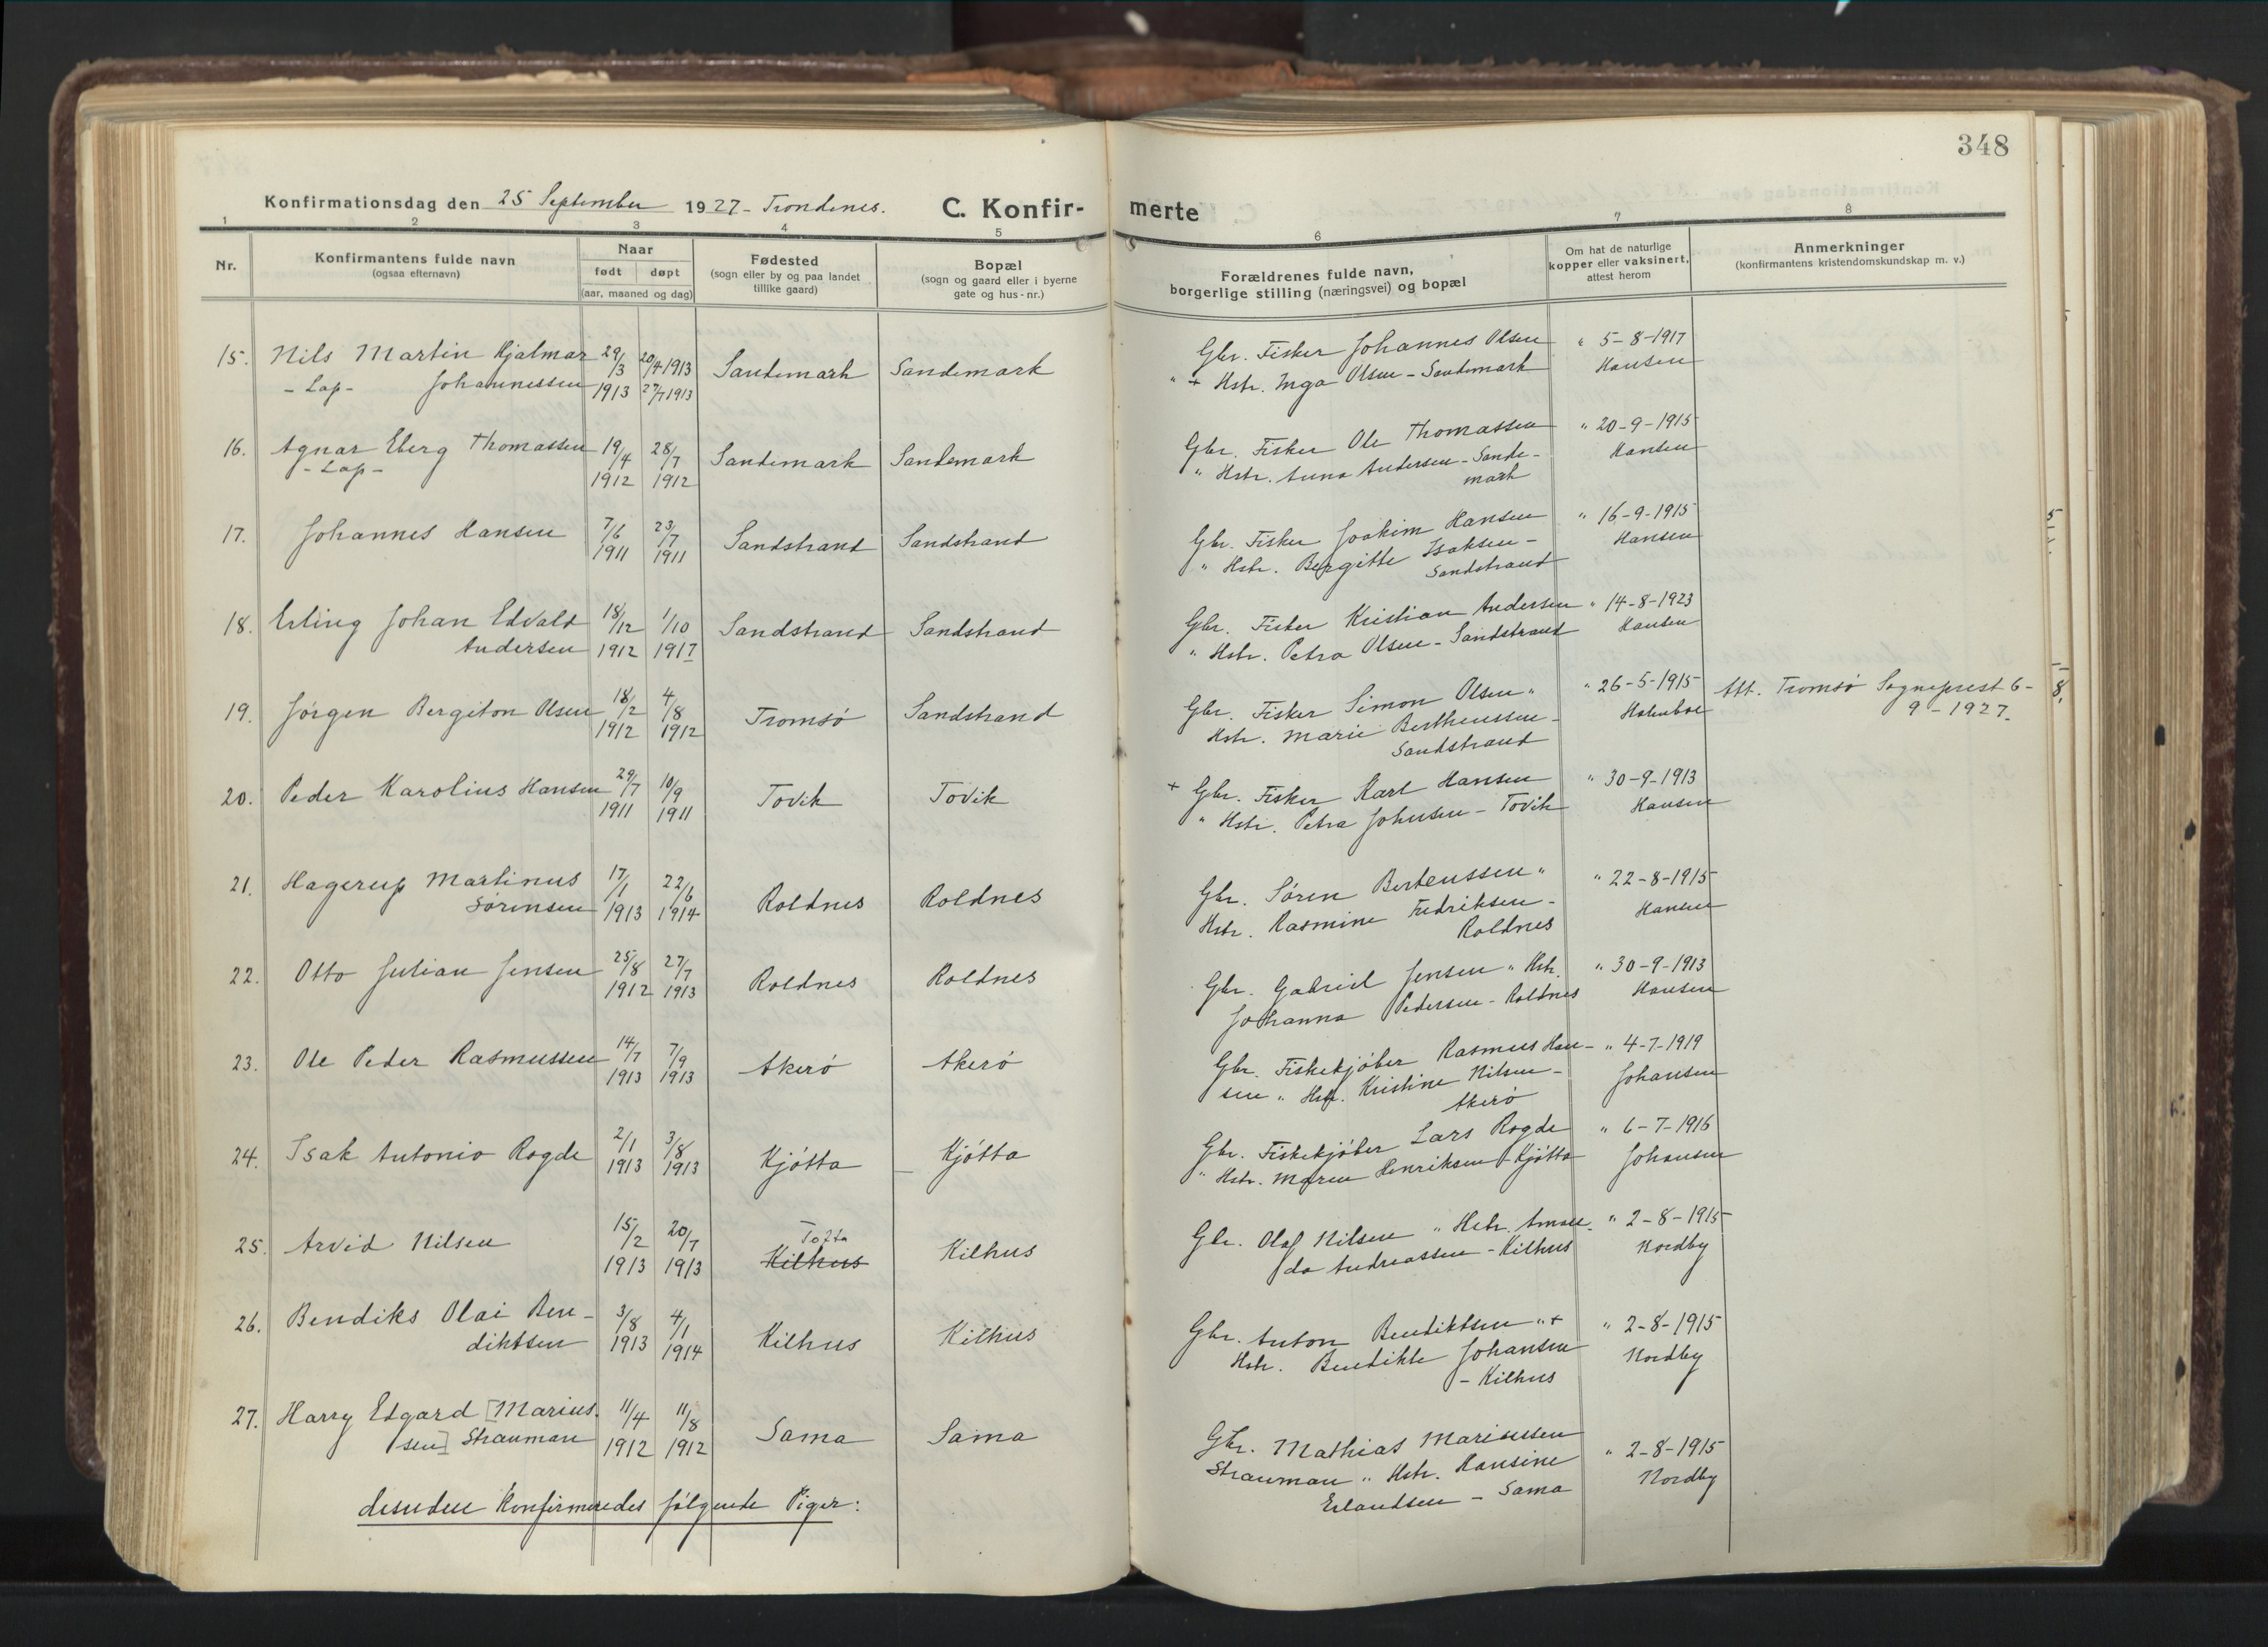 348
Konfirmationsdag den 25 September 1927 - Trondenes. C. Konfir- merte
1 2 3 4 5 6 7 8
Nr.
Konfirmantens fulde navn
(ogsaa efternavn)
Naar
født døpt
(aar, maaned og dag)
Fødested
(sogn eller by og paa landet
tillike gaard)
Bopæl
(sogn og gaard eller i byerne
gate og hus-nr.)
Forældrenes fulde navn,
borgerlige stilling (næringsvei) og bopæl
Om hat de naturlige
kopper eller vaksinert,
attest herom
Anmerkninger
(konfirmantens kristendomskundskap m. v.)
15. Nils Martin Hjalmar 29/3 20/4 1913 Sandemark Sandemark Gbr. Fisker Johannes Olsen " 5-8-1917
- Lap - Johannessen 1913 27/7 1913 " + Hstr. Inga Olsen - Sandemark Hansen
16. Agnar Eberg Thomassen 19/4 28/7 Sandemark Sandemark Gbr. Fisker Ole Thomassen " 20-9-1915
- Lap - 1912 1912 " Hstr. Anna Andersen - Sande- Hansen
mark
17. Johannes Hansen 7/6 23/7 Sandstrand Sandstrand Gbr. Fisker Joakim Hansen " 16-9-1915
1911 1911 " Hstr. Bergitte Isaksen - Hansen
Sandstrand
18. Erling Johan Edvald 18/12 1/10 Sandstrand Sandstrand Gbr. Fisker Kristian Andersen " 14-8-1923
Andersen 1912 1917 " Hstr. Petra Olsen - Sandstrand Hansen
19. Jörgen Bergiton Olsen 18/2 4/8 Tromsö Sandstrand Gbr. Fisker Simon Olsen " " 26-5-1915 Att. Tromsö Sogneprest 6-
1912 1912 Hstr. Marie Berthenssen - Holmboe 9-1927.
Sandstrand
20. Peder Karolius Hansen 29/7 10/9 Tovik Tovik + Gbr. Fisker Karl Hansen " 30-9-1913
1911 1911 " Hstr. Petra Johnsen - Tovik Hansen
21. Hagerup Martinus 17/1 22/6 Roldnes Roldnes Gbr. Sören Bertenssen " " 22-8-1915
Sörensen 1913 1914 Hstr. Rasmine Fredriksen - Hansen
Roldnes
22. Otto Julian Jensen 25/8 27/7 Roldnes Roldnes Gbr. Gabriel Jensen " Hstr. " 30-9-1913
1912 1913 Johanna Pedersen - Roldnes Hansen
23. Ole Peder Rasmussen 14/7 7/9 Akerö Akerö Gbr. Fiskekjöber Rasmus Han- " 4-7-1919
1913 1913 sen " Hstr. Kristine Nilsen - Johansen
Akerö
24. Isak Antonio Rogde 2/1 3/8 Kjötta Kjötta Gbr. Fiskekjöber Lars Rogde " 6-7-1916
1913 1913 " Hstr. Maren Henriksen - Kjötta Johansen
25. Arvid Nilsen 15/2 20/7 Tofta Kilhus Kilhus Gbr. Olaf Nilsen " Hstr. Aman- " 2-8-1915
1913 1913 da Andreassen - Kilhus Nordby
26. Bendiks Olai Ben- 3/8 4/1 Kilhus Kilhus Gbr. Anton Bendiktsen " + " 2-8-1915
diktsen 1913 1914 Hstr. Bendikte Johansen Nordby
- Kilhus
27. Harry Edgard [Marius- 11/4 11/8 Sama Sama Gbr. Mathias Mariussen " 2-8-1915
sen] Strauman 1912 1912 Strauman " Hstr. Hansine Nordby
Erlandsen - Sama
desuden Konfirmeredes følgende Piger: